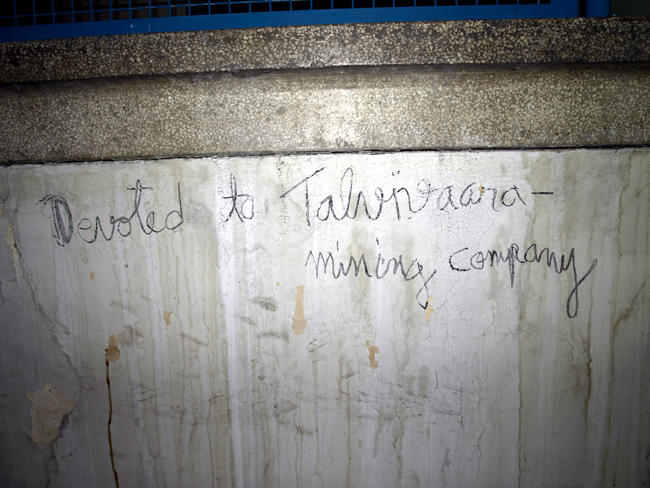 Devoted to Talvivaara-
mining company